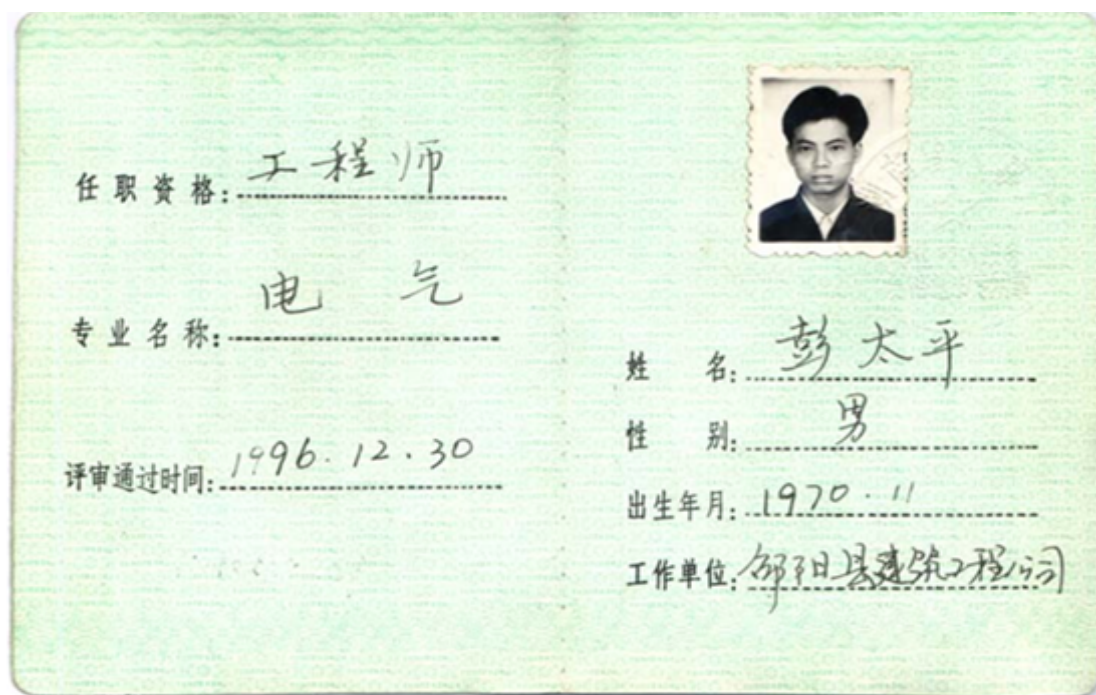 任职资格: 工程师
专业名称: 电气
评审通过时间: 1996.12.30
姓名: 彭太平
性别: 男
出生年月: 1970.11
工作单位: 邵阳县建筑工程公司